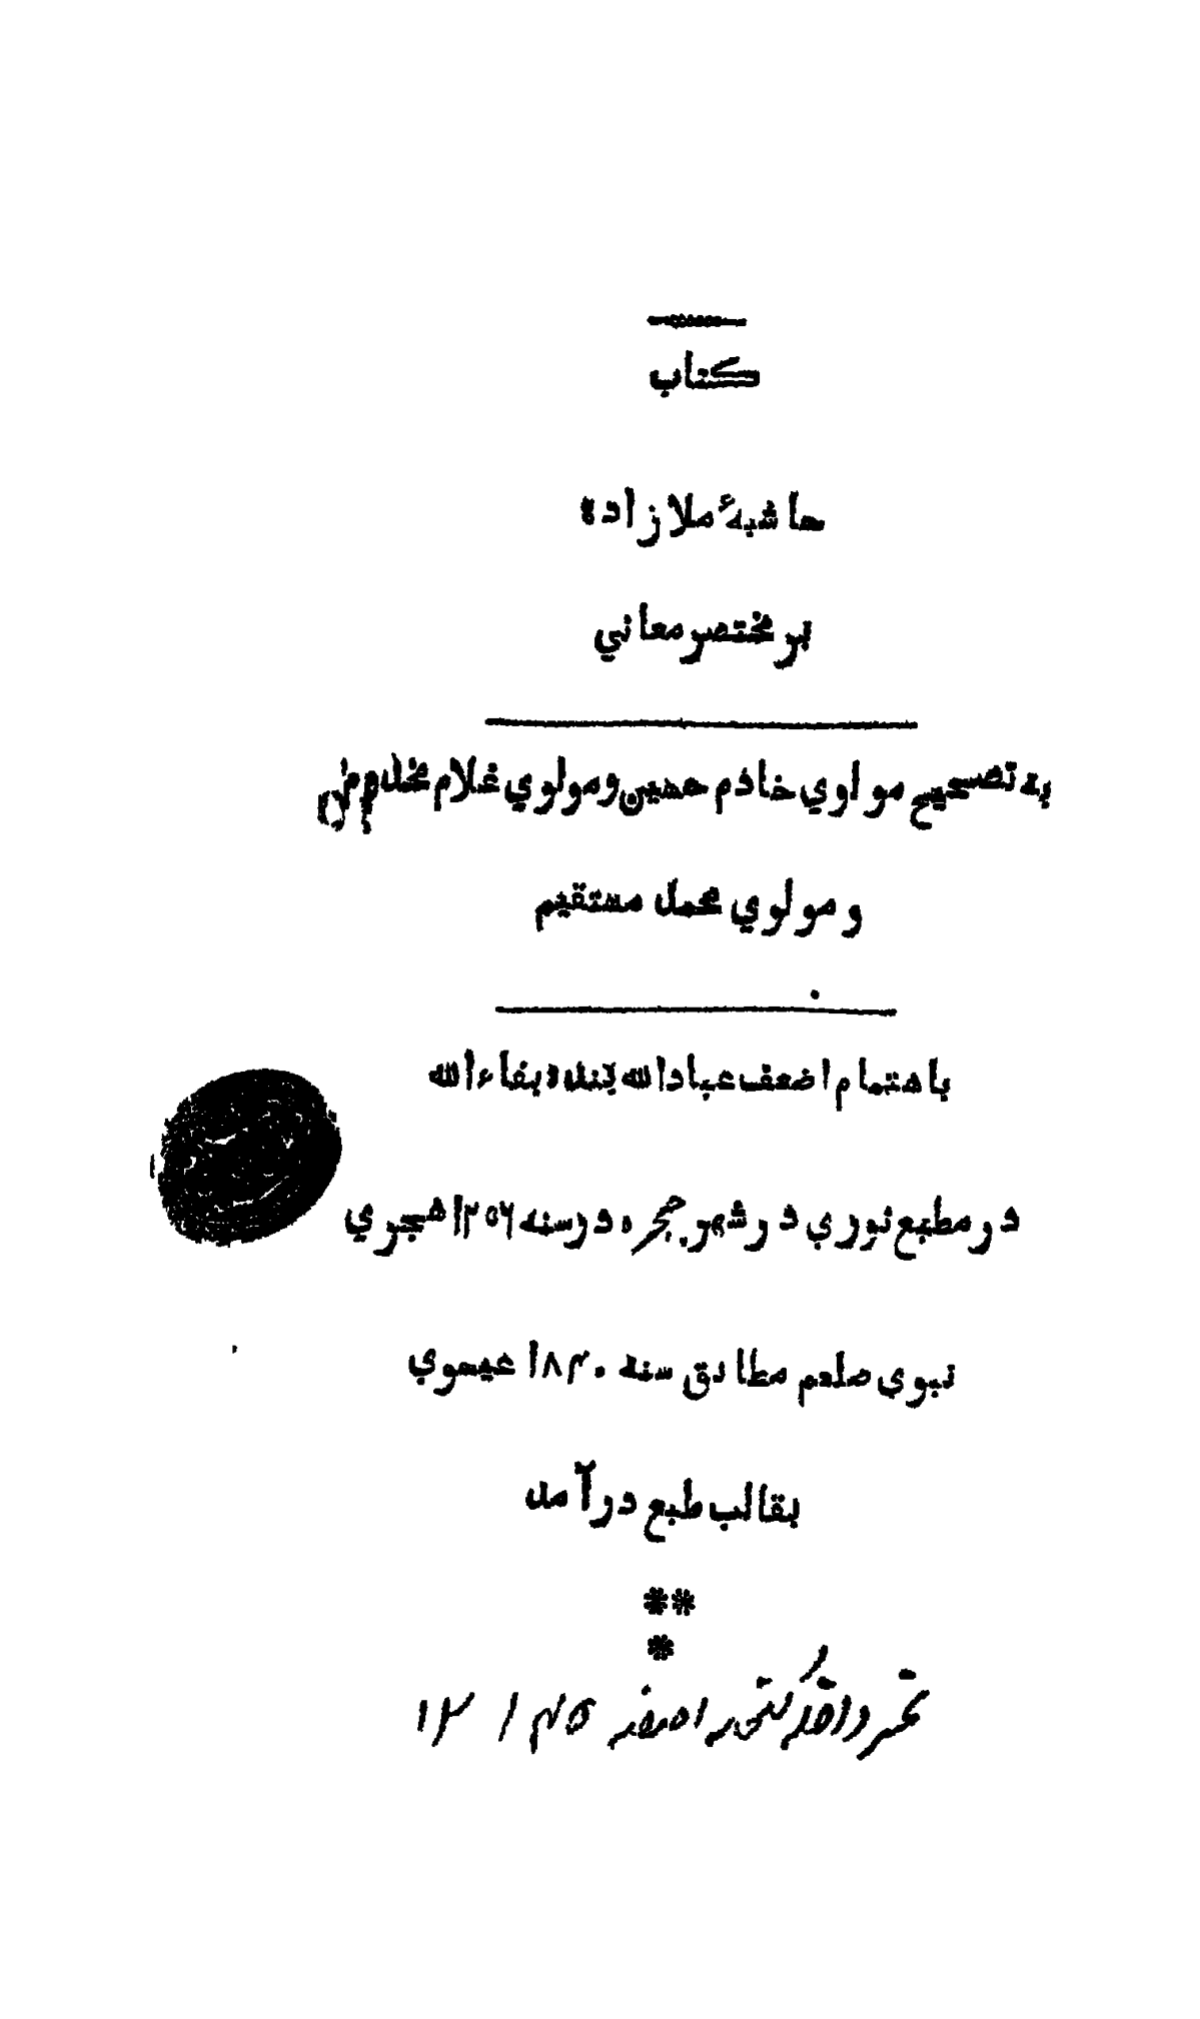 كتاب
حاشيهٔ ملا زاده
بر مختصر معاني
به تصحيح مولوي خادم حسين و مولوي غلام مخدوم
و مولوي محمد مستقيم
باهتمام اضعف عباد الله بنده بقاء الله
در مطبع نوري در شهر در سنه ١٢٥٦ هجري
نبوي صلعم مطابق سنه ١٨٤٠ عيسوي
بقالب طبع در آمد